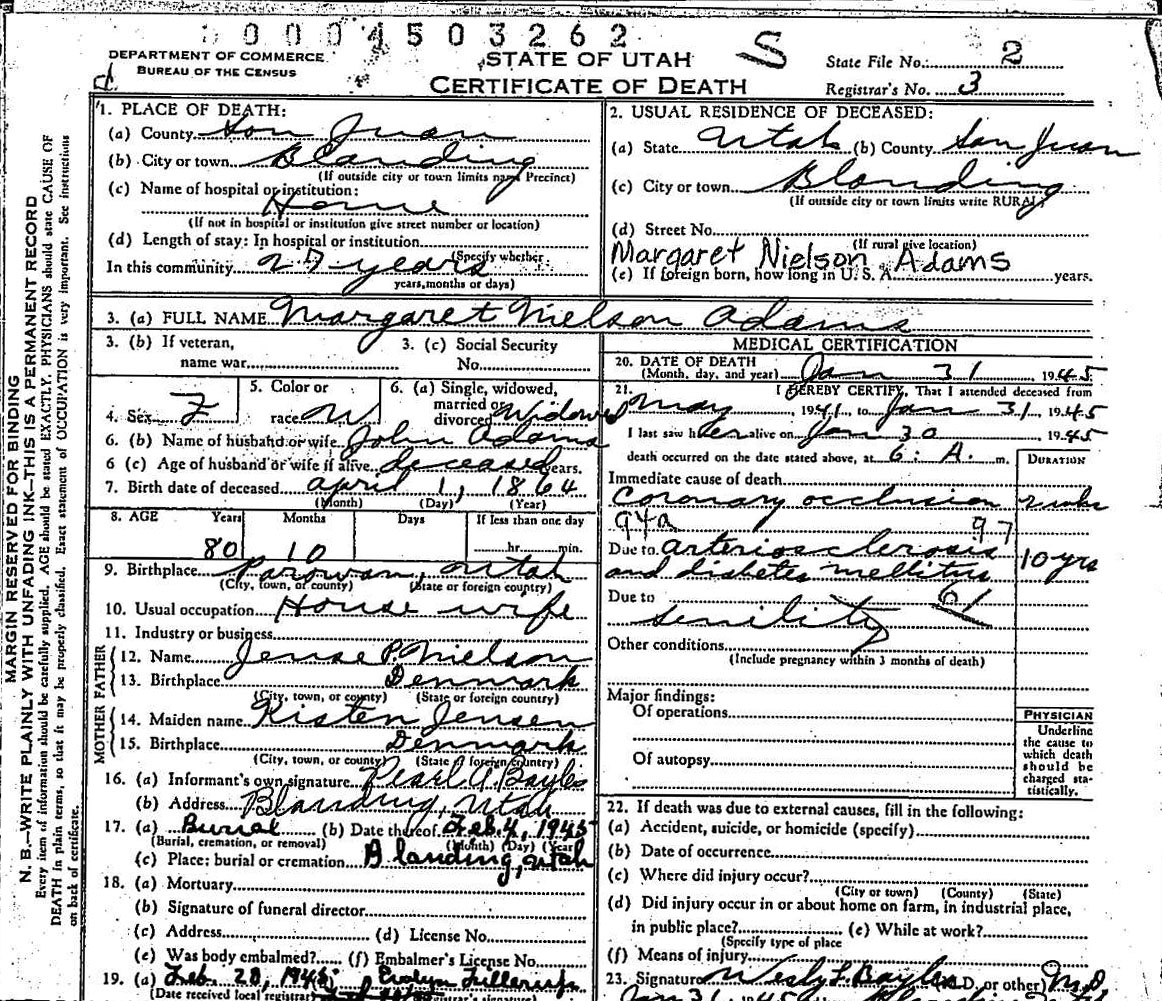 0004503262
DEPARTMENT OF COMMERCE
BUREAU OF THE CENSUS
STATE OF UTAH
CERTIFICATE OF DEATH
S
State File No. 2
Registrar's No. 3
MARGIN RESERVED FOR BINDING
N. B.—WRITE PLAINLY WITH UNFADING INK—THIS IS A PERMANENT RECORD
Every item of information should be carefully supplied. AGE should be stated EXACTLY. PHYSICIANS should state CAUSE OF
DEATH in plain terms, so that it may be properly classified. Exact statement of OCCUPATION is very important. See instructions
on back of certificate.
1. PLACE OF DEATH:
(a) County San Juan
(b) City or town Blanding
(If outside city or town limits name Precinct)
(c) Name of hospital or institution:
Home
(If not in hospital or institution give street number or location)
(d) Length of stay: In hospital or institution
(Specify whether
In this community 27 years
years, months or days)
2. USUAL RESIDENCE OF DECEASED:
(a) State Utah (b) County San Juan
(c) City or town Blanding
(If outside city or town limits write RURAL)
(d) Street No.
(If rural give location)
Margaret Nielson Adams
(e) If foreign born, how long in U. S. A. years.
3. (a) FULL NAME Margaret Nielson Adams
3. (b) If veteran,
name war
3. (c) Social Security
No.
4. Sex F
5. Color or
race W
6. (a) Single, widowed,
married or
divorced Widowed
6. (b) Name of husband or wife John Adams
6 (c) Age of husband or wife if alive deceased years.
7. Birth date of deceased April 1, 1864
(Month) (Day) (Year)
8. AGE Years Months Days If less than one day
80 10 hr. min.
9. Birthplace Parowan, Utah
(City, town, or county) (State or foreign country)
10. Usual occupation House wife
11. Industry or business
FATHER
12. Name Jense P. Nielson
13. Birthplace Denmark
(City, town, or county) (State or foreign country)
MOTHER
14. Maiden name Kisten Jensen
15. Birthplace Denmark
(City, town, or county) (State or foreign country)
16. (a) Informant's own signature Pearl A. Bayles
(b) Address Blanding, Utah
17. (a) Burial (b) Date thereof Feb. 4, 1945
(Burial, cremation, or removal) (Month) (Day) (Year)
(c) Place: burial or cremation Blanding, Utah
18. (a) Mortuary
(b) Signature of funeral director
(c) Address (d) License No.
(e) Was body embalmed? (f) Embalmer's License No.
19. (a) Feb. 20, 1945 Evelyn
(Date received local registrar) registrar's signature)
MEDICAL CERTIFICATION
20. DATE OF DEATH
(Month, day, and year) Jan 31 1945
21. I HEREBY CERTIFY, That I attended deceased from
May, 1941, to Jan 31, 1945
I last saw her alive on Jan 30 1945
death occurred on the date stated above, at 6: A. m.
DURATION
Immediate cause of death
Coronary occlusion 2 wks
94a 97
Due to arteriosclerosis 10 yrs
and diabetes mellitus
Due to 61
senility
Other conditions
(Include pregnancy within 3 months of death)
Major findings:
Of operations
Of autopsy
PHYSICIAN
Underline
the cause to
which death
should be
charged sta-
tistically.
22. If death was due to external causes, fill in the following:
(a) Accident, suicide, or homicide (specify)
(b) Date of occurrence
(c) Where did injury occur?
(City or town) (County) (State)
(d) Did injury occur in or about home on farm, in industrial place,
in public place? (e) While at work?
(Specify type of place
(f) Means of injury
23. Signature Wesly L. Bayles (M.D., or other) M.D.
Jan 31 1945